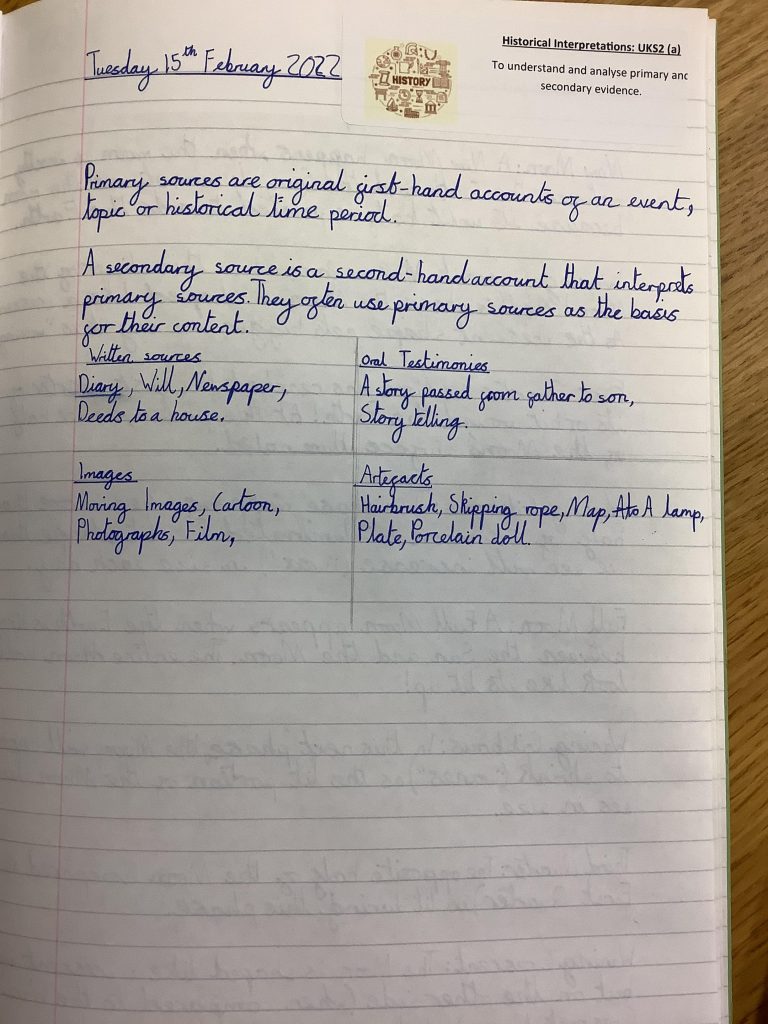 Tuesday 15th February 2022
HISTORY
Historical Interpretations: UKS2 (a)
To understand and analyse primary and
secondary evidence.
Primary sources are original first-hand accounts of an event,
topic or historical time period.
A secondary source is a second-hand account that interprets
primary sources. They often use primary sources as the basis
for their content.
Written sources
Diary, Will, Newspaper,
Deeds to a house.
Oral Testimonies
A story passed from father to son,
Story telling.
Images
Moving Images, Cartoon,
Photographs, Film,
Artefacts
Hairbrush, Skipping rope, Map, A lamp,
Plate, Porcelain doll.